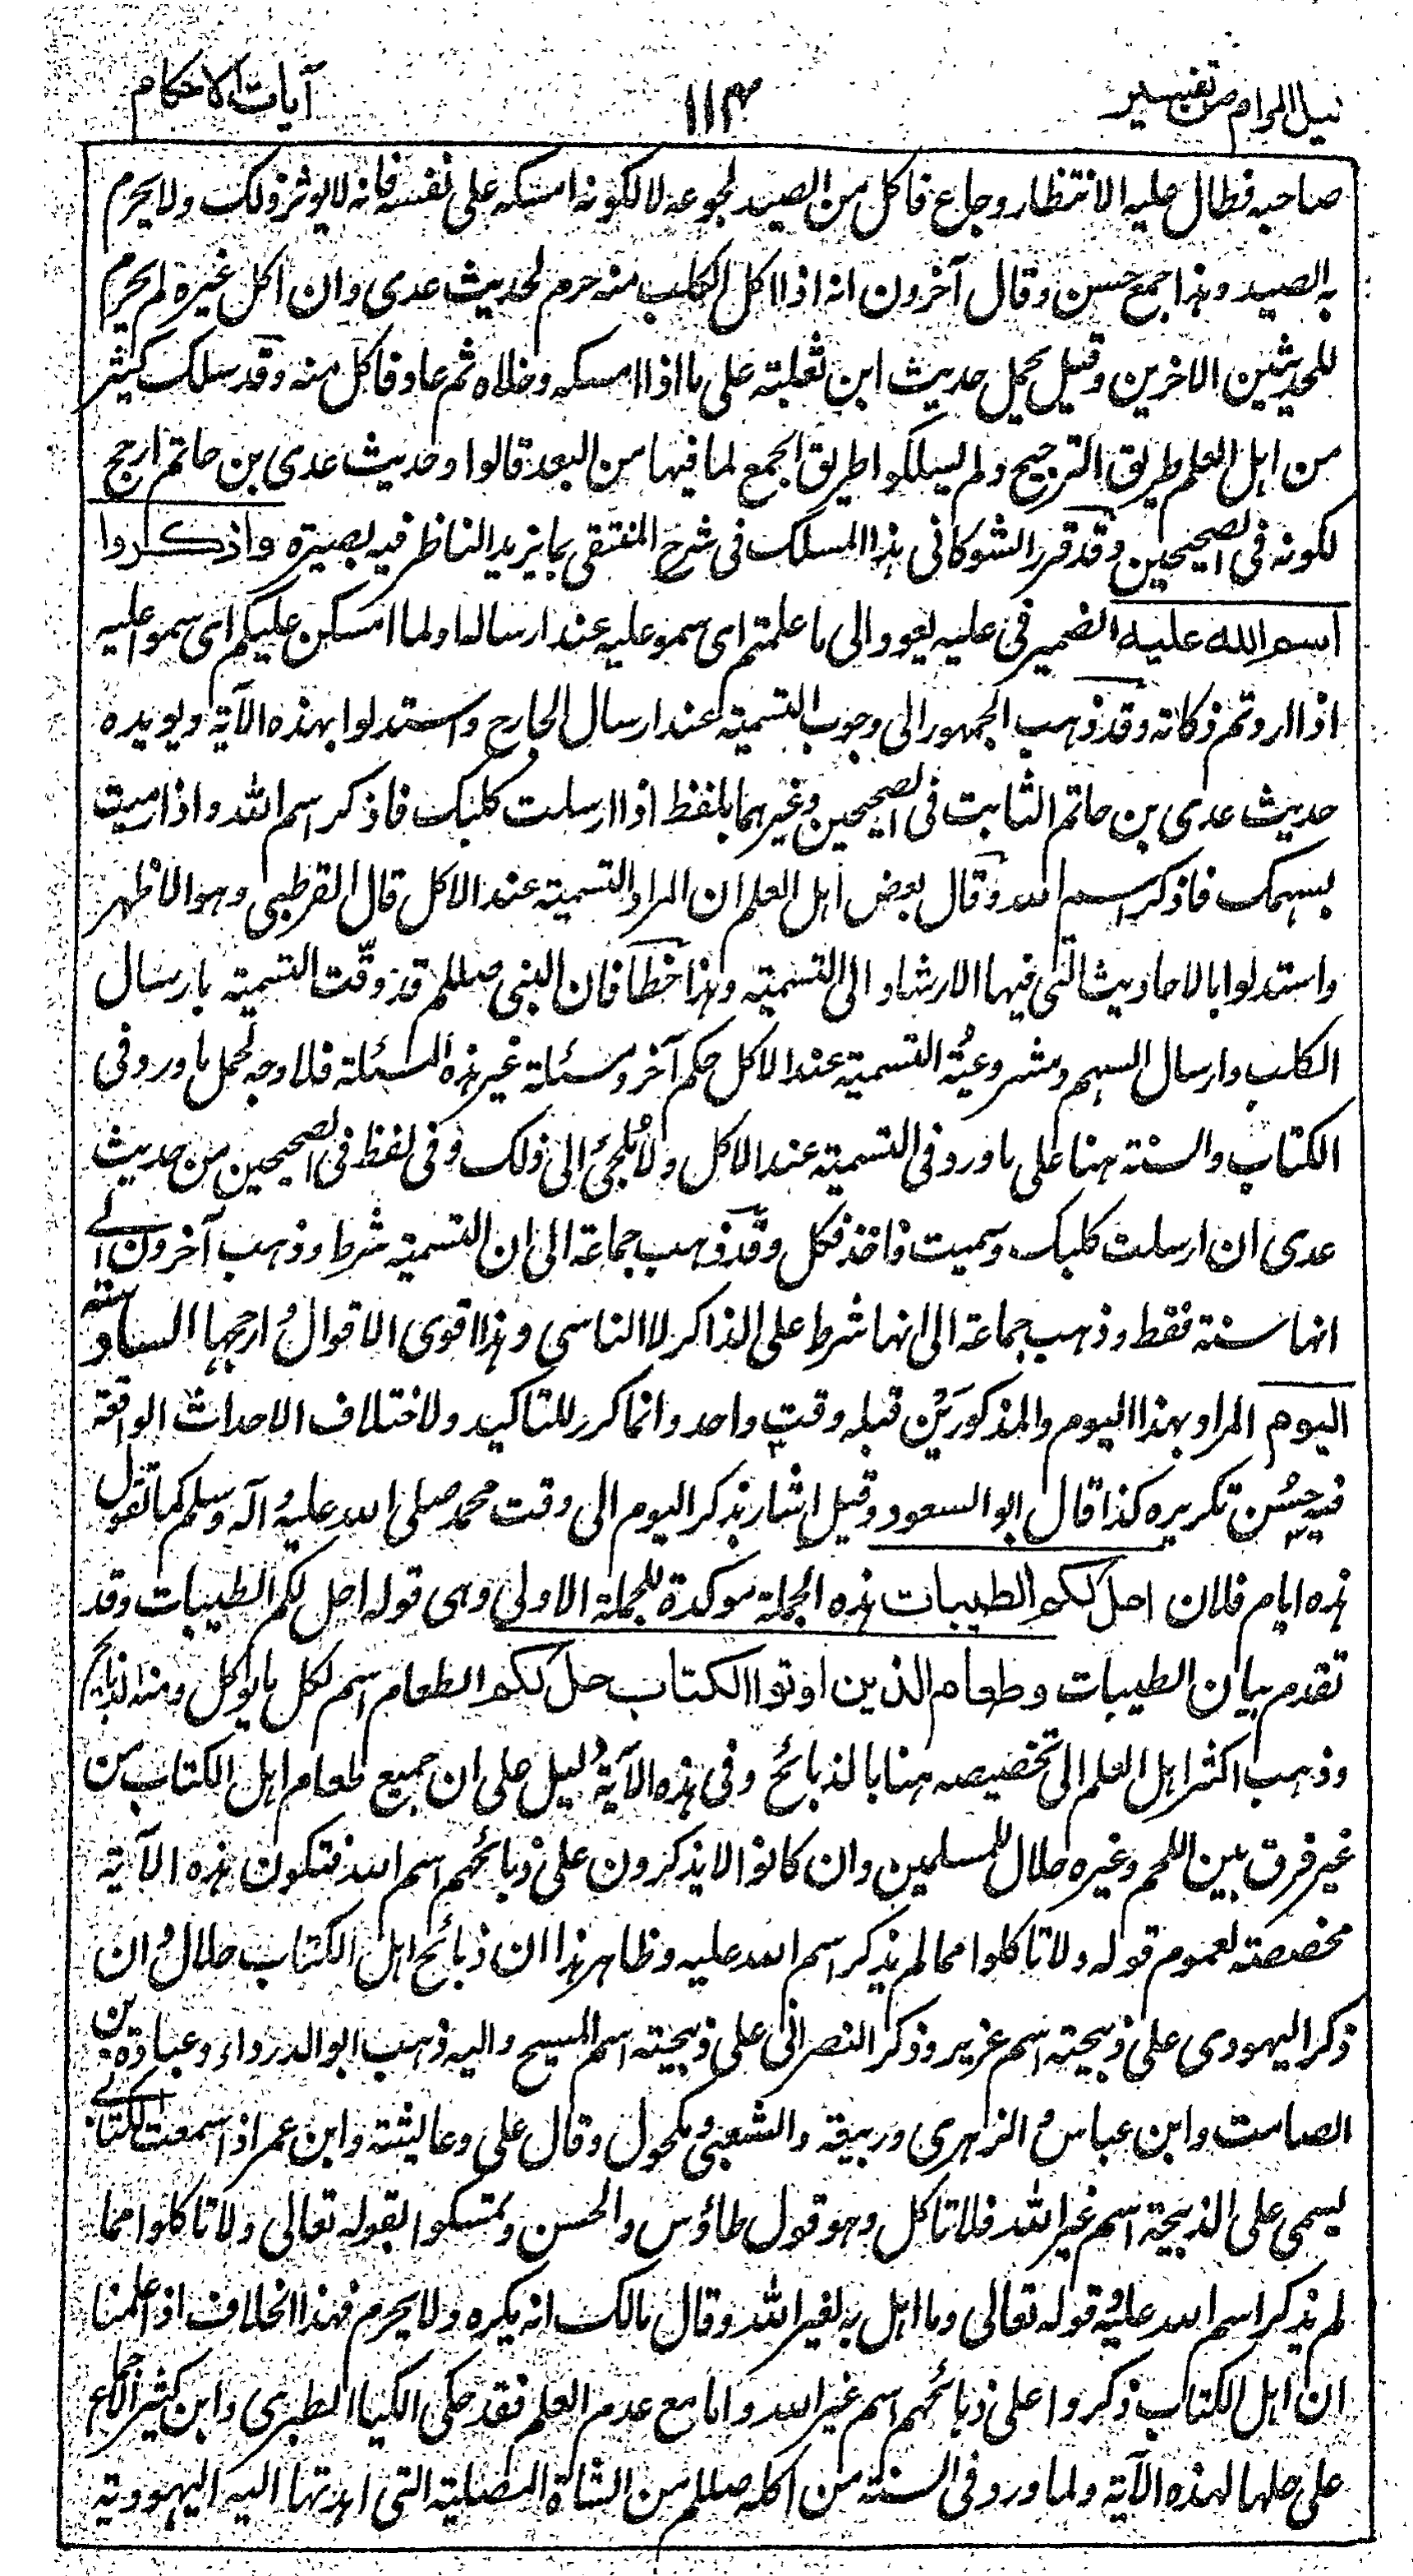 نيل المرام من تفسير ١١٣ آيات الاحكام
صاحبه فطال عليه الانتظار وجاع فاكل من الصيد لجوعه لا لكونه امسكه على نفسه فانه لا يوثر ذلك ولا يحرم
به الصيد وهذا جمع حسن وقال آخرون انه اذا اكل الكلب منه حرم لحديث عدى وان اكل غيره لم يحرم
للحديثين الاخرين وقيل يحمل حديث ابن ثعلبة على ما اذا امسكه وخلاه ثم عاد فاكل منه وقد سلك كثير
من اهل العلم طريق الترجيح ولم يسلكوا طريق الجمع لما فيها من البعد قالوا وحديث عدى بن حاتم ارجح
لكونه فى الصحيحين وقد قرر الشوكانى هذا المسلك فى شرح المنتقى بما يزيد الناظر فيه بصيرة واذكروا
اسم الله عليه الضمير فى عليه يعود الى ما علمتم اى سموا عليه عند ارساله او لما امسكن عليكم اى سموا عليه
اذا اردتم ذكاته وقد ذهب الجمهور الى وجوب التسمية عند ارسال الجارح واستدلوا بهذه الآية ويويده
حديث عدى بن حاتم الثابت فى الصحيحين وغيرهما بلفظ اذا ارسلت كلبك فاذكر اسم الله واذا رميت
بسهمك فاذكر اسم الله وقال بعض اهل العلم ان المراد التسمية عند الاكل قال القرطبى وهو الاظهر
واستدلوا بالاحاديث التى فيها الارشاد الى التسمية وهذا خطأ فان النبى صللم قد وقّت التسمية بارسال
الكلب وارسال السهم ومشروعيّة التسمية عند الاكل حكم آخر ومسئلة غير هذه المسئلة فلا وجه لحمل ما ورد فى
الكتاب والسنة هنا على ما ورد فى التسمية عند الاكل ولا مُلجئ الى ذلك وفى لفظ فى الصحيحين من حديث
عدى ان ارسلت كلبك وسميت فاخذ فكل وقد ذهب جماعة الى ان التسمية شرط وذهب آخرون الى
انها سنة فقط وذهب جماعة الى انها شرط على الذاكر لا الناسى وهذا اقوى الاقوال وارجحها السادسة
اليوم المراد بهذا اليوم والمذكورَيْن قبله وقت واحد وانما كرر للتاكيد ولاختلاف الاحداث الواقعة
فيه حسُن تكريره كذا قال ابو السعود وقيل اشار بذكر اليوم الى وقت محمد صلى الله عليه وآله وسلم كما تقول
هذه ايام فلان احل لكم الطيبات هذه الجملة موكدة للجملة الاولى وهى قوله احل لكم الطيبات وقد
تقدم بيان الطيبات وطعام الذين اوتوا الكتاب حل لكم الطعام اسم لكل ما يوكل ومنه الذبائح
وذهب اكثر اهل العلم الى تخصيصه هنا بالذبائح وفى هذه الآية دليل على ان جميع طعام اهل الكتاب من
غير فرق بين اللحم وغيره حلال للمسلمين وان كانوا لا يذكرون على ذبائحهم اسم الله فتكون هذه الآية
مخصصة لعموم قوله ولا تاكلوا مما لم يذكر اسم الله عليه وظاهر هذا ان ذبائح اهل الكتاب حلال وان
ذكر اليهودى على ذبيحته اسم عزير وذكر النصرانى على ذبيحته اسم المسيح واليه ذهب ابو الدرداء وعبادة بن
الصامت وابن عباس والزهرى وربيعة والشعبى ومكحول وقال على وعائشة وابن عمر اذا سمعت الكتابى
يسمى على الذبيحة اسم غير الله فلا تاكل وهو قول طاؤس والحسن وتمسكوا بقوله تعالى ولا تاكلوا مما
لم يذكر اسم الله عليه وقوله تعالى وما اهل به لغير الله وقال مالك انه يكره ولا يحرم فهذا الخلاف اذا علمنا
ان اهل الكتاب ذكروا على ذبائحهم اسم غير الله واما مع عدم العلم فقد حكى الكيا الطبرى وابن كثير الاجماع
على حلها لهذه الآية ولما ورد فى السنة من اكله صللم من الشاة المصلية التى اهدتها اليه اليهودية